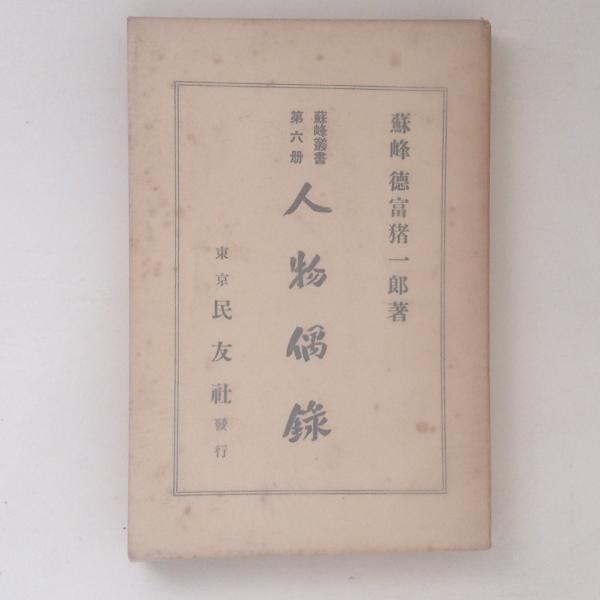 蘇峰 德富猪一郎著
蘇峰叢書
第六册
人物偶錄
東京 民友社 發行